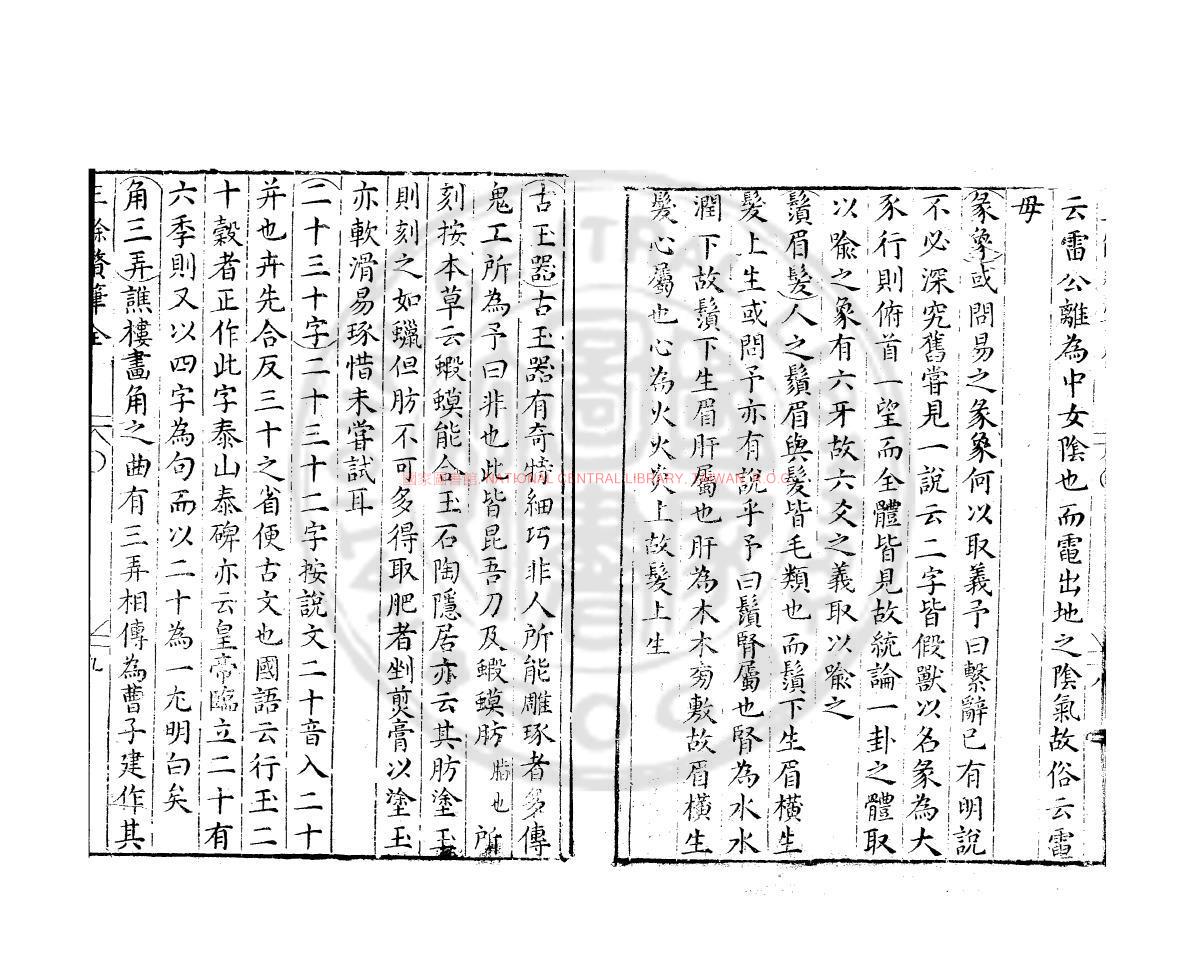 云雷公離為中女陰也而電出地之陰氣故俗云電
母
彖象或問易之彖象何以取義予曰繫辭已有明說
不必深究舊嘗見一說云二字皆假獸以名彖為大
豕行則俯首一望而全體皆見故統論一卦之體取
以喩之象有六牙故六爻之義取以喩之
鬚眉髮人之鬚眉與髮皆毛類也而鬚下生眉橫生
髮上生或問予亦有說乎予曰鬚腎屬也腎為水水
潤下故鬚下生眉肝屬也肝為木木旁敷故眉橫生
髮心屬也心為火火炎上故髮上生
古玉器古玉器有奇特細巧非人所能雕琢者多傳
鬼工所為予曰非也此皆昆吾刀及蝦蟆肪肪也所
刻按本草云蝦蟆能合玉石陶隱居亦云其肪塗玉
則刻之如蠟但肪不可多得取肥者剉煎膏以塗玉
亦軟滑易琢惜未嘗試耳
二十三十字二十三十二字按說文二十音入二十
并也卉先合反三十之省便古文也國語云行玉二
十瑴者正作此字泰山泰碑亦云皇帝臨立二十有
六季則又以四字為句而以二十為一尢明白矣
角三弄譙樓畫角之曲有三弄相傳為曹子建作其
三餘贅筆全
九
國家圖書館 NATIONAL CENTRAL LIBRARY, TAIWAN, R.O.C